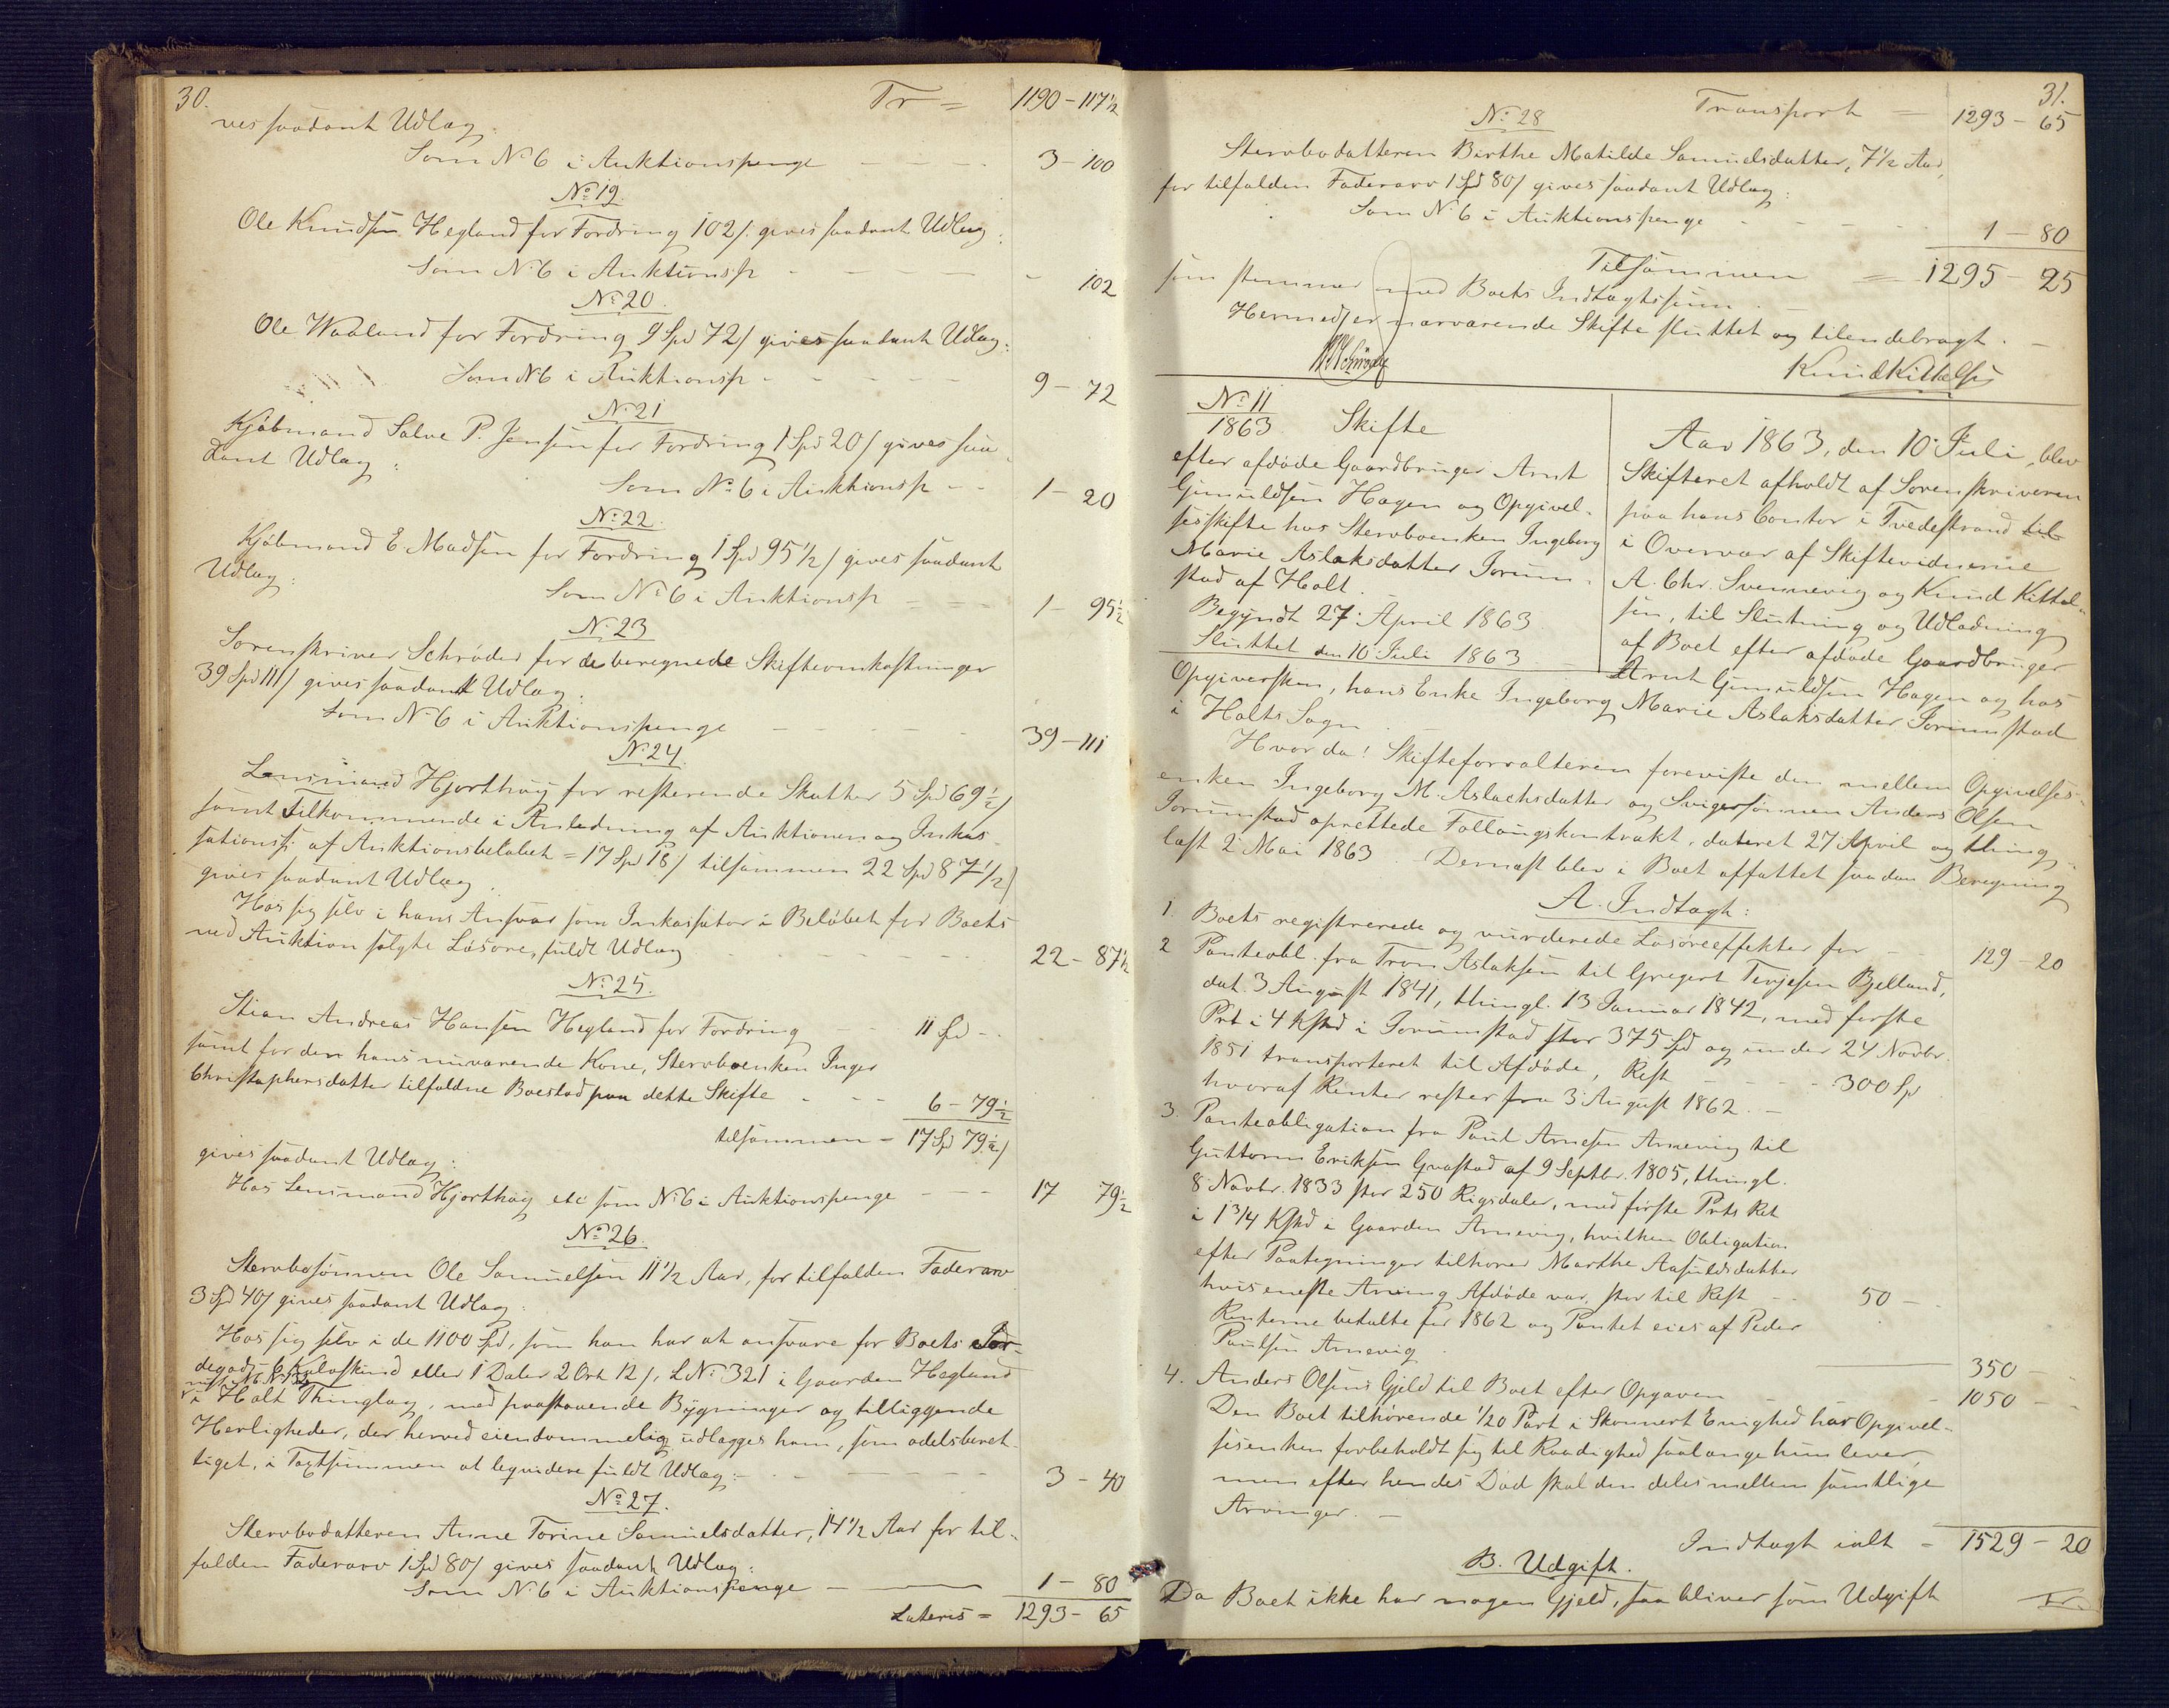 30.
Tr = 1190 - 117½
ves saadant Udlæg:
Som No 6 i Auktionspenge 3 - 100
No 19.
Ole Knudsen Hegland for Fordring 102 s. gives saadant Udlæg:
Som No 6 i Auktionsp - 102
No 20.
Ole Waaland for Fordring 9 Spd 72 s gives saadant Udlæg:
Som No 6 i Auktionsp 9 - 72
No 21
Kjøbmand Salve P. Jensen for Fordring 1 Spd 20 s gives saa-
dant Udlæg:
Som No 6 i Auktionsp 1 - 20
No 22.
Kjøbmand E. Madsen for Fordring 1 Spd 95½ s gives saadant
Udlæg:
Som No 6 i Auktionsp 1 - 95½
No 23
Sorenskriver Schrøder for de beregnede Skifteomkostninger
39 Spd 111 s gives saadant Udlæg:
Som No 6 i Auktionspenge 39 - 111
No 24.
Lensmand Hjorthøy for resterende Skatter 5 Spd 69½ s
samt Tilkommende i Anledning af Auktionen og Inkas-
sationsp. af Auktionsbeløbet = 17 Spd 18 s tilsammen 22 Spd 87½ s
gives saadant Udlæg:
Hos sig selv i hans Ansvar som Inkassator i Beløbet for Boets
ved Auktion solgte Løsøre, fuldt Udlæg 22 - 87½
No 25.
Stian Andreas Hansen Hegland for Fordring 11 Spd -
samt for den hans nuværende Kone, Stervboenken Inger
Christophersdatter tilfaldne Boeslod paa dette Skifte 6 - 79½
tilsammen = 17 Spd 79½ s
gives saadant Udlæg:
Hos Lensmand Hjorthøy etc som No 6 i Auktionspenge 17 79½
No 26.
Stervbosønnen Ole Samuelsen 11½ Aar, for tilfalden Faderarv
3 Spd 40 s gives saadant Udlæg:
Hos sig selv i de 1100 Spd, som han har at ansvare for Boets Jor-
degods 6 Kalvskind eller 1 Daler 2 Ort 12 s, L No 321 i Gaarden Hegland
i Holt Thinglag, med paastaaende Bygninger og tilliggende
Herligheder, der herved eiendommelig udlægges ham, som odelsberet-
tiget, i Taxtsummen at leqvidere fuldt Udlæg: 3 - 40
No 27.
Stervbodatteren Anne Torine Samuelsdatter, 14½ Aar for til-
falden Faderarv 1 Spd 80 s gives saadant Udlæg:
Som No 6 i Auktionspenge 1 - 80
Lateris = 1293 - 65
31.
Transport = 1293 - 65
No 28
Stervbodatteren Birthe Matilde Samuelsdatter, 7½ Aar,
for tilfalden Faderarv 1 Spd 80 s gives saadant Udlæg:
Som No 6 i Auktionspenge 1 - 80
Tilsammen = 1295 - 25
som stemmer med Boets Indtægtssum.
Hermed er nærværende Skifte sluttet og tilendebragt.
Schrøder
Knud Kittelsen
No 11
1863 Skifte
efter afdøde Gaardbruger Arnt
Gunuldsen Hagen og Opgivel-
sesskifte hos Stervboenken Ingeborg
Marie Aslaksdatter Jorun-
stad af Holt.
Begyndt 27 April 1863
Sluttet den 10 Juli 1863
Aar 1863, den 10 Juli, blev
Skifteret afholdt af Sorenskriveren
paa hans Contor i Tvedestrand til
i Overvær af Skiftevidnerne
A. Chr. Svennevig og Knud Kittel-
sen, til Slutning og Udlodning
af Boet efter afdøde Gaardbruger
Arnt Gunuldsen Hagen og hos
Opgiversken, hans Enke Ingeborg Marie Aslaksdatter Jorunstad
i Holts Sogn.
Hvor da! Skifteforvalteren foreviste den mellem Opgivelses-
enken Ingeborg M. Aslachsdatter og Svigersønnen Anders Olsen
Jorunstad oprettede Føllougskontrakt, dateret 27 April og thing-
læst 2 Mai 1863. Dernæst blev i Boet affattet saadan Beregning
A. Indtægt:
1. Boets registrerede og vurderede Løsøreeffekter for 129 - 20
2 Panteobl. fra Tron Aslaksen til Gregert Terjesen Bjelland,
dat. 3 August 1841, thingl. 13 Januar 1842, med første
Prt i 4 Kskd i Jorunstad stor 375 Spd og under 24 Novbr.
1851 transporteret til Afdøde, Rest 300 Sp
hvoraf Renter rester fra 3 August 1862.
3. Panteobligation fra Poul Arnesen Arnevig til
Guttorm Eriksen Gvastad af 9 Septbr. 1805, thingl.
8 Novbr. 1833 stor 250 Rigsdaler, med første Prts Ret
i 1 3/4 Kskd i Gaarden Arnevig, hvilken Obligation
efter Paategninger tilhører Marthe Aasuldsdatter
hvis eneste Arving Afdøde var, stor til Rest 50 -
Renterne betalte for 1862 og Pantet eies af Peder
Poulsen Arnevig. 350 -
4. Anders Olsens Gjeld til Boet efter Opgaven 1050 -
Den Boet tilhørende 1/20 Part i Skonnert Enighed har Opgivel-
sesenken forbeholdt sig til Raadighed saalænge hun lever,
men efter hendes Død skal den deles mellem samtlige
Arvinger.
Indtægt ialt = 1529 - 20
B. Udgift.
Da Boet ikke har nogen Gjeld, saa bliver som Udgift
Tr.